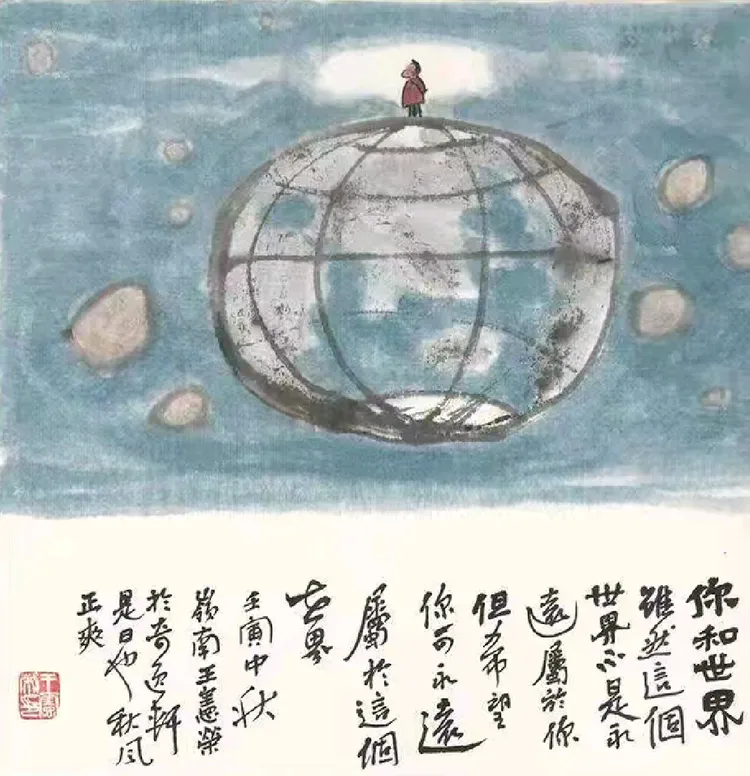 你和世界
雖然這個
世界不是永
遠屬於你
但希望
你可永遠
屬於這個
世界
壬寅中秋
嶺南王憲榮
於奇逸軒
是日也秋風
正爽